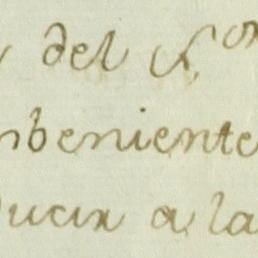 del S.or
nbeniente
ducir a la